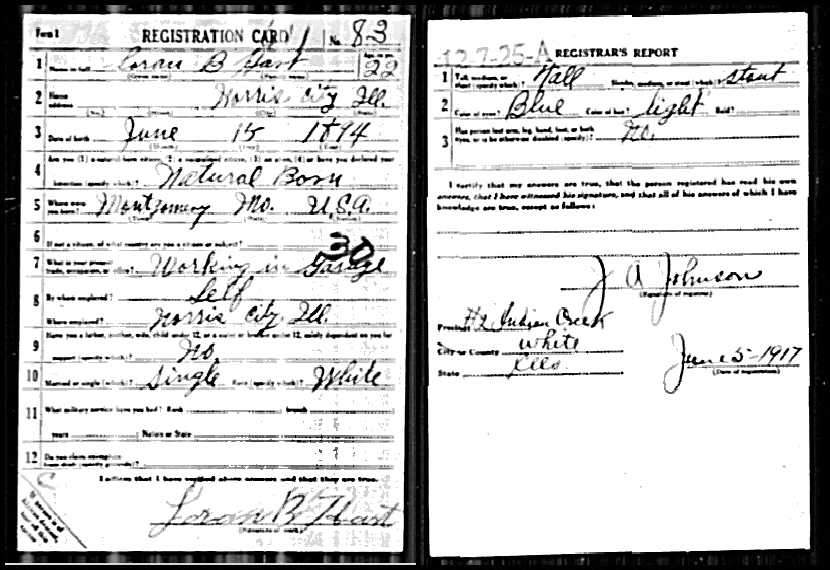 Form 1 REGISTRATION CARD No. 83
1 Name in full Loran B Hart Age, in yrs. 22
(Given name) (Family name)
2 Home address Norris City Ill.
(No.) (Street) (City) (State)
3 Date of birth June 15 1894
(Month) (Day) (Year)
4 Are you (1) a natural-born citizen, (2) a naturalized citizen, (3) an alien, (4) or have you declared your
intention (specify which)? Natural Born
5 Where were you born? Montgomery Mo. U.S.A.
(Town) (State) (Nation)
6 If not a citizen, of what country are you a citizen or subject?
30
7 What is your present trade, occupation, or office? Working in Garage
8 By whom employed? Self
Where employed? Norris City Ill.
9 Have you a father, mother, wife, child under 12, or a sister or brother under 12, solely dependent on you for
support (specify which)? No
10 Married or single (which)? Single Race (specify which)? White
11 What military service have you had? Rank branch
years Nation or State
12 Do you claim exemption from draft (specify grounds)?
I affirm that I have verified above answers and that they are true.
Loran B Hart
12-7-25-A REGISTRAR'S REPORT
1 Tall, medium, or short (specify which)? Tall Slender, medium, or stout (which)? Stout
2 Color of eyes? Blue Color of hair? light Bald?
3 Has person lost arm, leg, hand, foot, or both
eyes, or is he otherwise disabled (specify)? No.
I certify that my answers are true, that the person registered has read his own
answers, that I have witnessed his signature, and that all of his answers of which I have
knowledge are true, except as follows:
J A Johnson
(Signature of registrar)
Precinct #2 Indian Creek
City or County White
State Ills.
June 5-1917
(Date of registration)